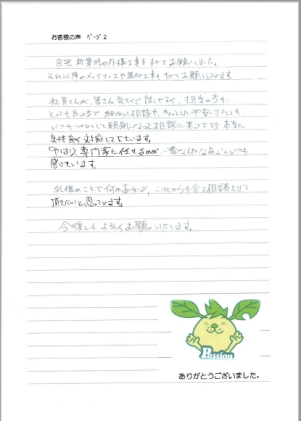 お客様の声 ページ2
自宅新築時の外構工事をすべてお願いしました。
それ以降のメンテナンスや追加工事もすべてお願いしています。
社員さんが、皆さん気さくで話しやすく、担当の方も
とても良い方で、細かい相談や、ちょっとした不安ごとでも
いつも 親身になって相談に乗って下さり、本当に
気持良く対応して下さいます。
「やはり、専門家に任せるのが一番なんだなあ」といつも
感じています。
外構のことで何かあれば、これからも色々相談させて
頂きたいと思っています。
今後ともよろしくお願いいたします。
Passion
ありがとうございました。